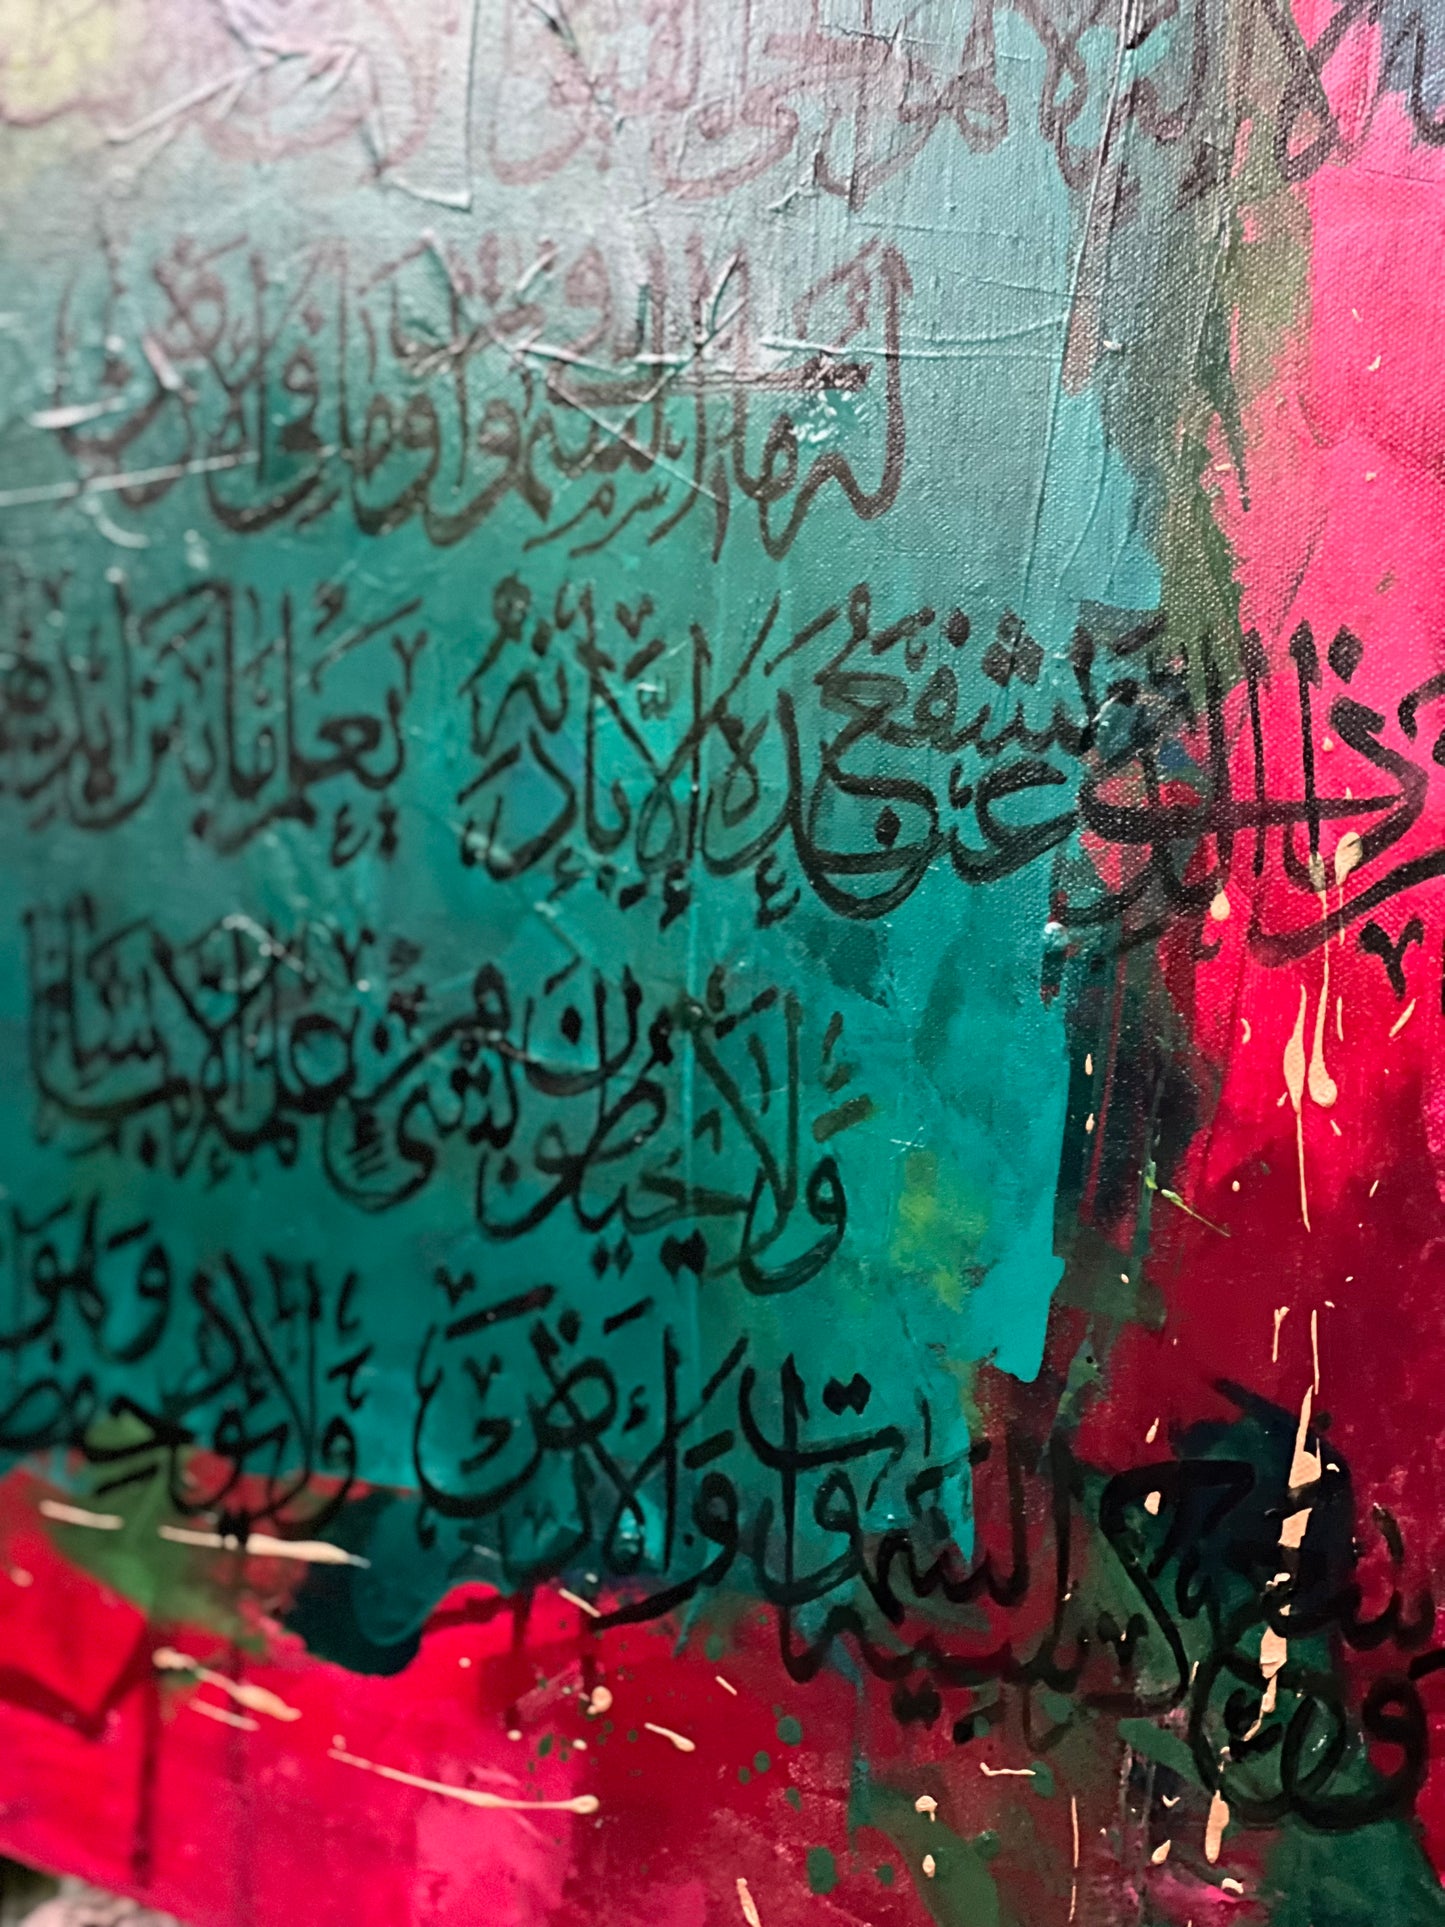 لا إله إلا هو الحي القيوم لا
له ما في السموت وما في الأرض
ذا الذي يشفع عنده إلا بإذنه يعلم ما بين
ولا يحيطون بشيء من علمه إلا بما شاء
وسع كرسيه السموت والأرض ولا يؤده وهو